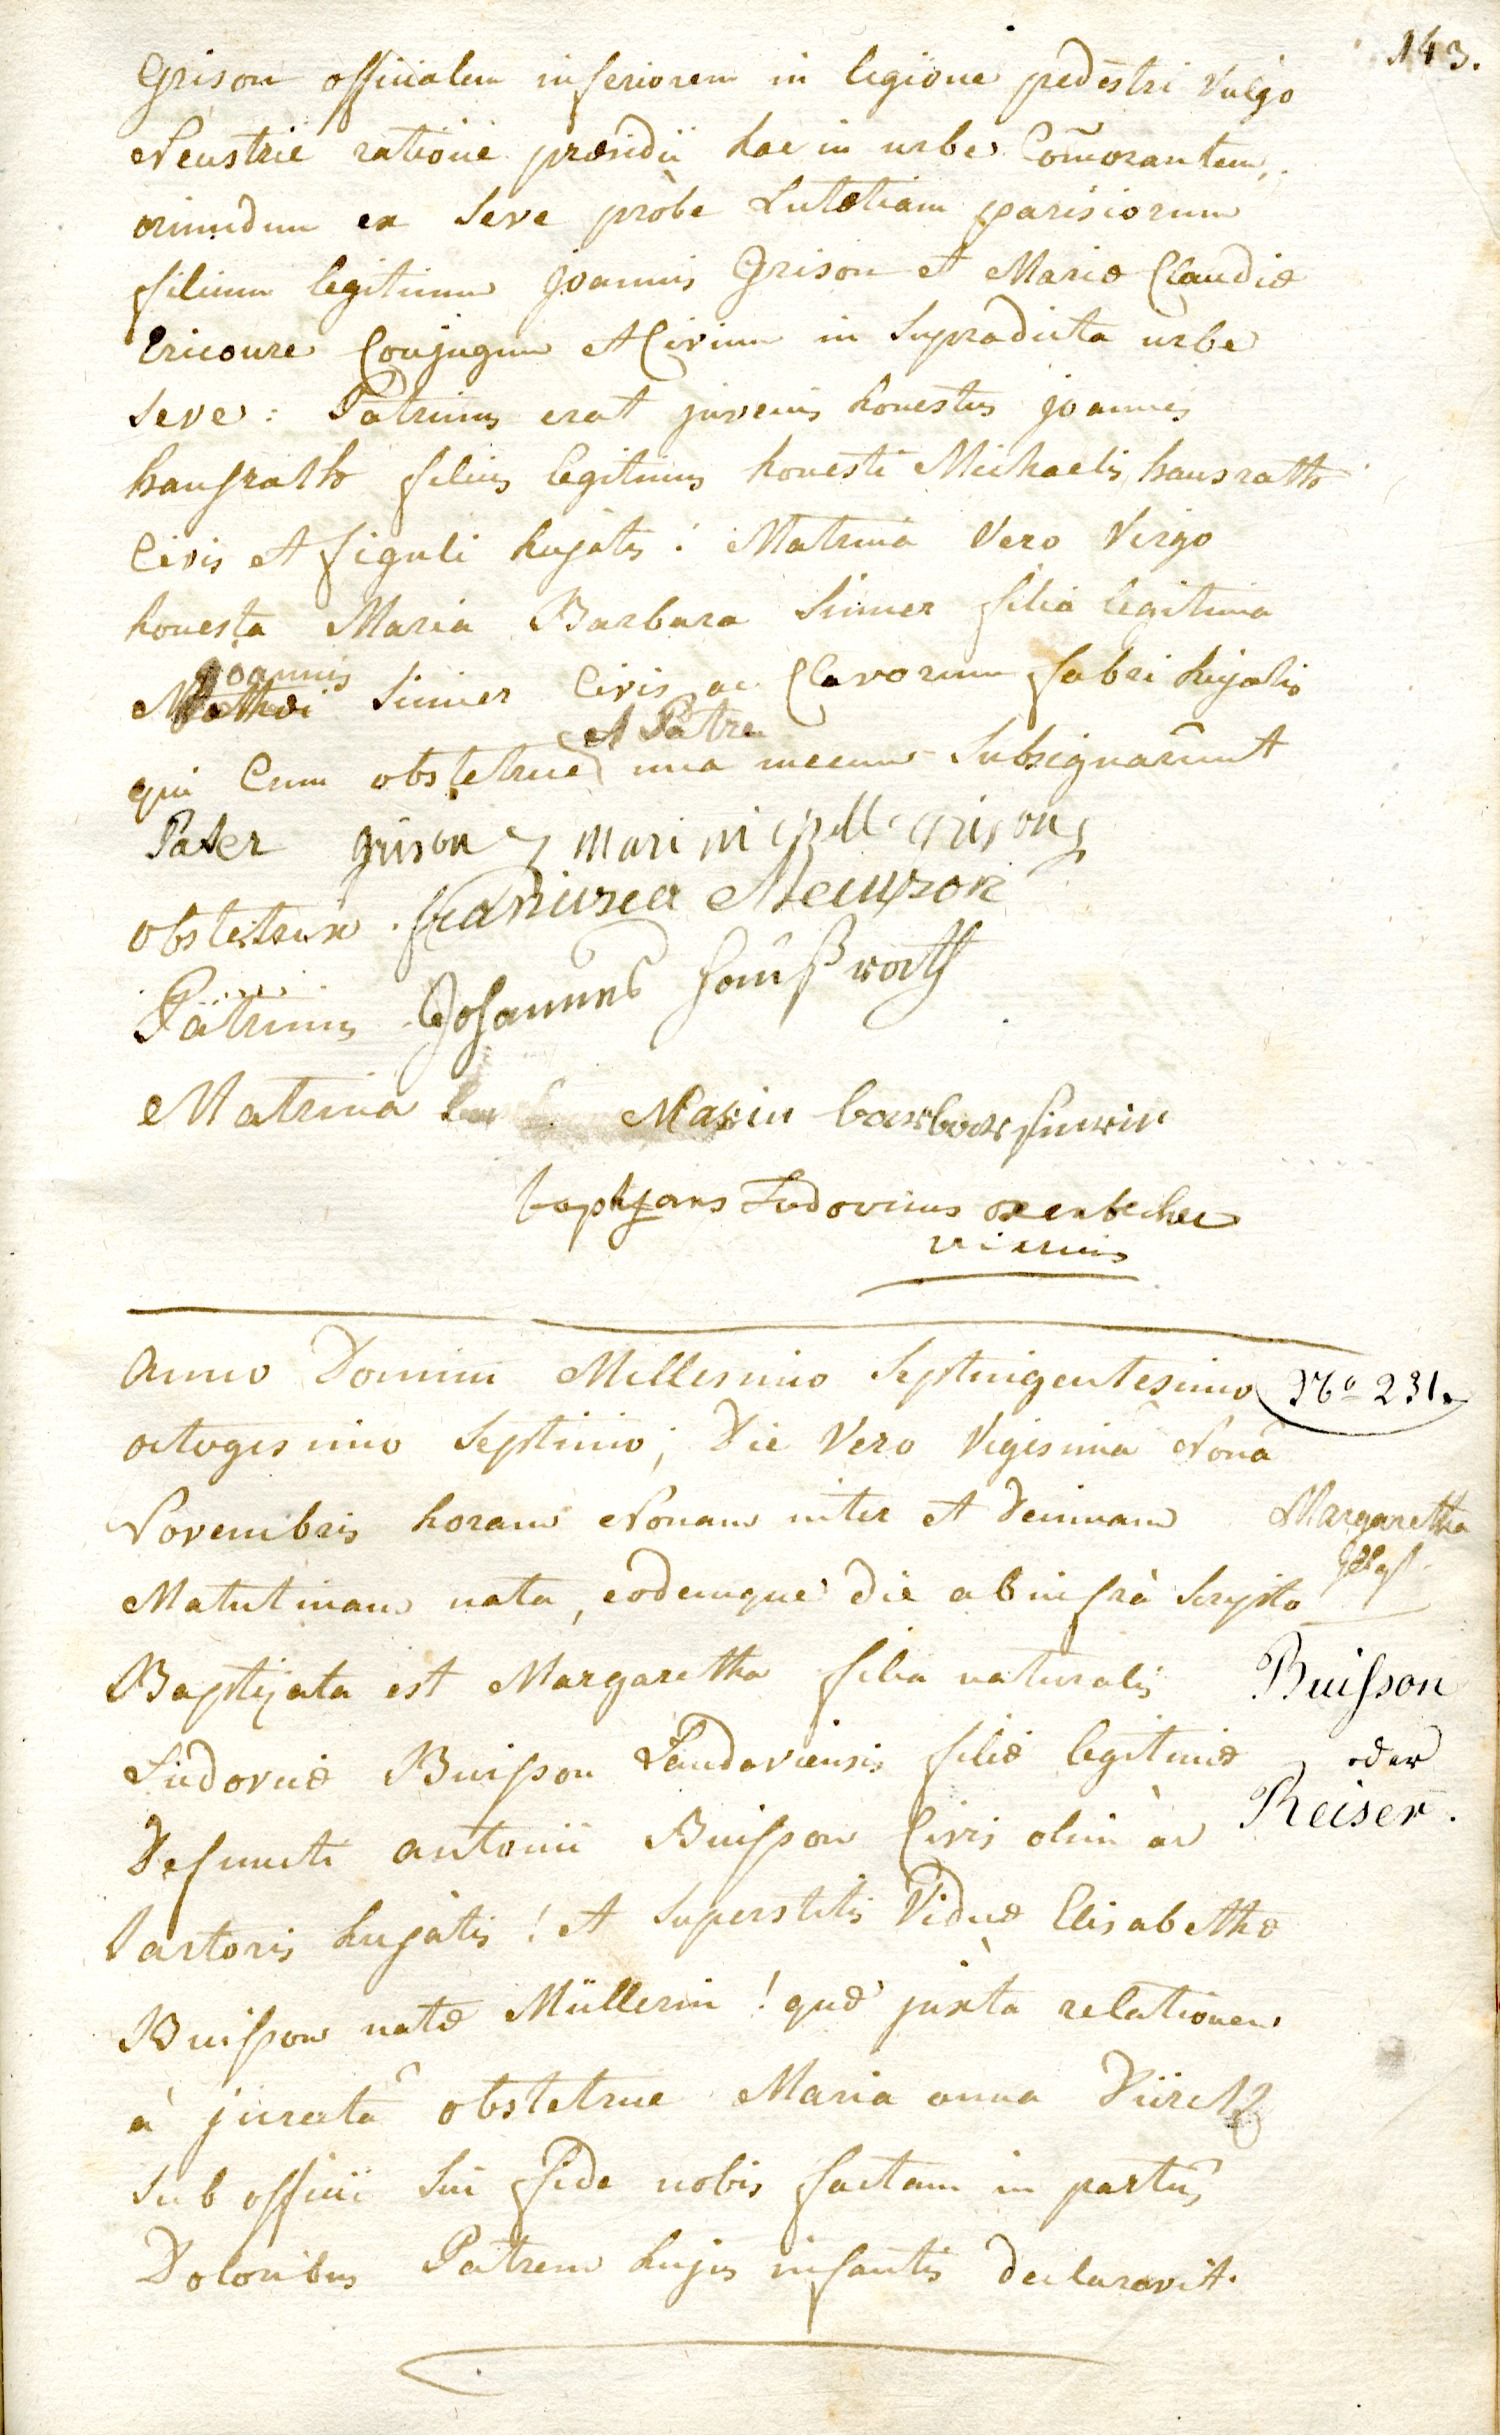 143.
Grison officialem inferiorem in legione pedestri Vulgo
Neustrie ratione præsidii hac in urbe Com̃orantem,
oriundum ex Seve pròbe Lutetiam parisiorum
filium legitimum Joannis Grison et Mariæ Claudiæ
Ericoure Conjugum et Civium in Supradicta urbe
Seve: Patrinus erat juvenis honestus joannes
hausrath filius legitimus honesti Michaelis hausrath
Civis et figuli hujatis: Matrina Vero Virgo
honesta Maria Barbara Sinner filia legitima
Joannis
Sinner Civis ac Clavorum fabri hujatis
et Patre
qui Cum obstetrice una mecum Subsignarunt
Pater grison
obstetrix franciscea
Patrinus Johannes Haußrath
Matrina Maria barbara sinerin
baptizans Ludovicus
vicarius
Anno Domini Millesimo Septingentesimo No 231.
octogesimo Septimo; Die Vero Vigesima Nona
Novembris horam Nonam inter et Decimam Margaretha
Matutinam nata, eodemque die ab infrà Scripto
Baptizata est Margaretha filia naturalis Buisson
Ludovicæ Buisson Landaviensis filiæ legitimæ oder
Defuncti Antonii Buisson Civis olim ac Reiser.
Sartoris hujàtis! et Superstitis Viduæ Elisabethæ
Buisson natæ Müllerin! quæ juxta relationem
à jurata obstetrice Maria anna Dürch
Sub officii Sui fide nobis factam in partus
Doloribus Patrem hujus infantis declaravit.